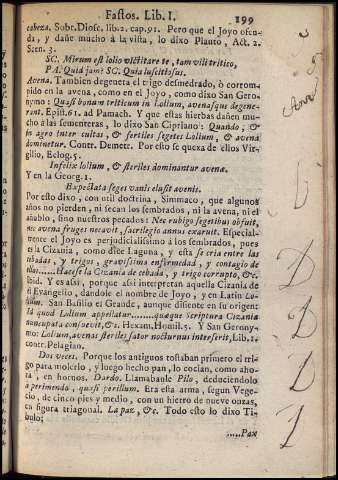 Fastos. Lib. I. 199
cabeza. Sobr. Diosc. lib. 2. cap. 91. Pero que el Joyo ofen-
da, y dañe mucho à la vista, lo dixo Plauto, Act. 2.
Scen. 3.
SC. Mirum est lolio victitare te, tam vili tritico,
PA. Quid jam? SC. Quia luscitiosus.
Avena. Tambien degenera el trigo desmedrado, ò corrom-
nido en la avena, como en el Joyo, como dixo San Gero-
nymo: Quasi bonum triticum in Lolium, avenasque degene-
rant. Epist. 61. ad Pamach. Y que estas hierbas dañen mu-
cho à las sementeras, lo dixo San Cipriano: Quando, &
in agro inter cultas, & fertiles segetes Lolium, & avena
dominetur. Contr. Demetr. Por esto se quexa de ellos Vir-
gilio, Eclog. 5.
Infelix lolium, & steriles dominantur avenæ.
Y en la Georg. 1.
Expectata seges vanis elusit avenis.
Por esto dixo, con util doctrina, Simmaco, que algunos
años no pierden, ni secan los sembrados, ni la avena, ni el
añublo, sino nuestros pecados: Nec rubigo segetibus obfuit,
nec avena fruges necavit, sacrilegio annus exaruit. Especial-
mente el Joyo es perjudicialissimo à los sembrados, pues
es la Cizania, como dice Laguna, y esta se cria entre las
cebadas, y trigos, gravissima enfermedad, y contagio de
ellos......Hacese la Cizania de cebada, y trigo corrupto, &c.
ibid. Y es assi, porque assi interpretan aquella Cizania de
el Evangelio, dandole el nombre de Joyo, y en Latin Lo-
lium. San Basilio el Grande, aunque dissiente en su origen:
Id quod Lolium appellatur........quæque Scriptura Cizania
nuncupata consuevit, &c. Hexam. Homil. 5. Y San Gerony-
mo: Lolium, avenas steriles sator nocturnus interserit, Lib. 1.
contr. Pelagian.
Dos veces. Porque los antiguos tostaban primero el tri-
go para molerlo, y luego hecho pan, lo cocian, como aho-
ra, en hornos. Dardo. Llamabanle Pilo, deduciendolo
à perimendo, quasi perillum. Era esta arma, segun Vege-
cio, de cinco pies y medio, con un hierro de nueve onzas,
en figura triangular. La paz, &c. Todo esto lo dixo Ti-
bulo;
.....Pax